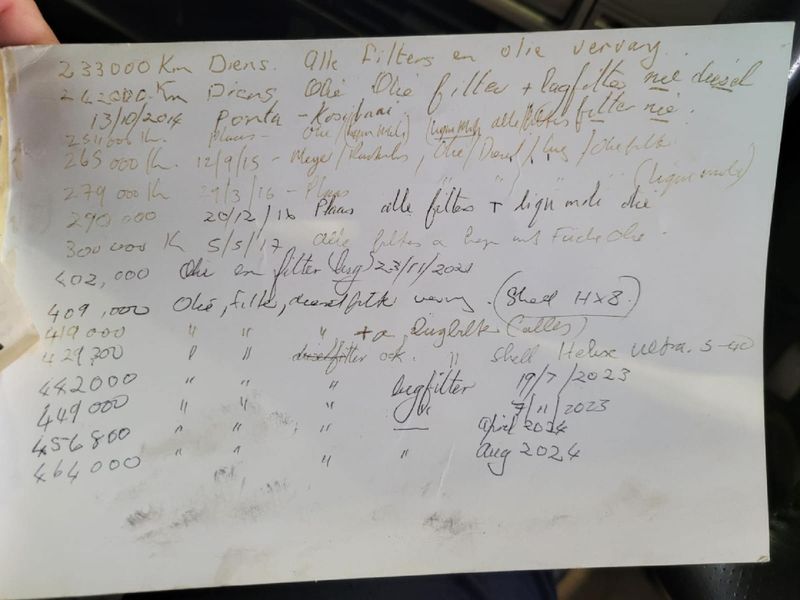 233000 Km Diens. Alle Filters en olie vervang.
Km Diens Olie Olie filter + lugfilter nie diesel
13/10/2014 Ponta - Kosibaai alle filter nie.
251000 K. Plaas - Olie
265000 K. 12/9/15 - Olie/Diesel/Lug/Oliefilter
279000 K 29/3/16 - Plaas " " " (liqui moli)
290000 20/12/16 Plaas alle filters + liqui moli olie
300000 K 5/5/17 alle filters Fuchs Olie.
402,000 Olie en filter (lug) 23/11/2021
409,000 Olie, filter, dieselfilter vervang. (Shell HX8.)
419000 " " " + a Lugfilter (alles)
429,300 " " dieselfilter ook. " Shell Helix Ultra. 5-40
442000 " " " lugfilter 19/7/2023
449000 " " " " 7/11/2023
456800 " " " — April 2024
464000 " " " " Aug 2024